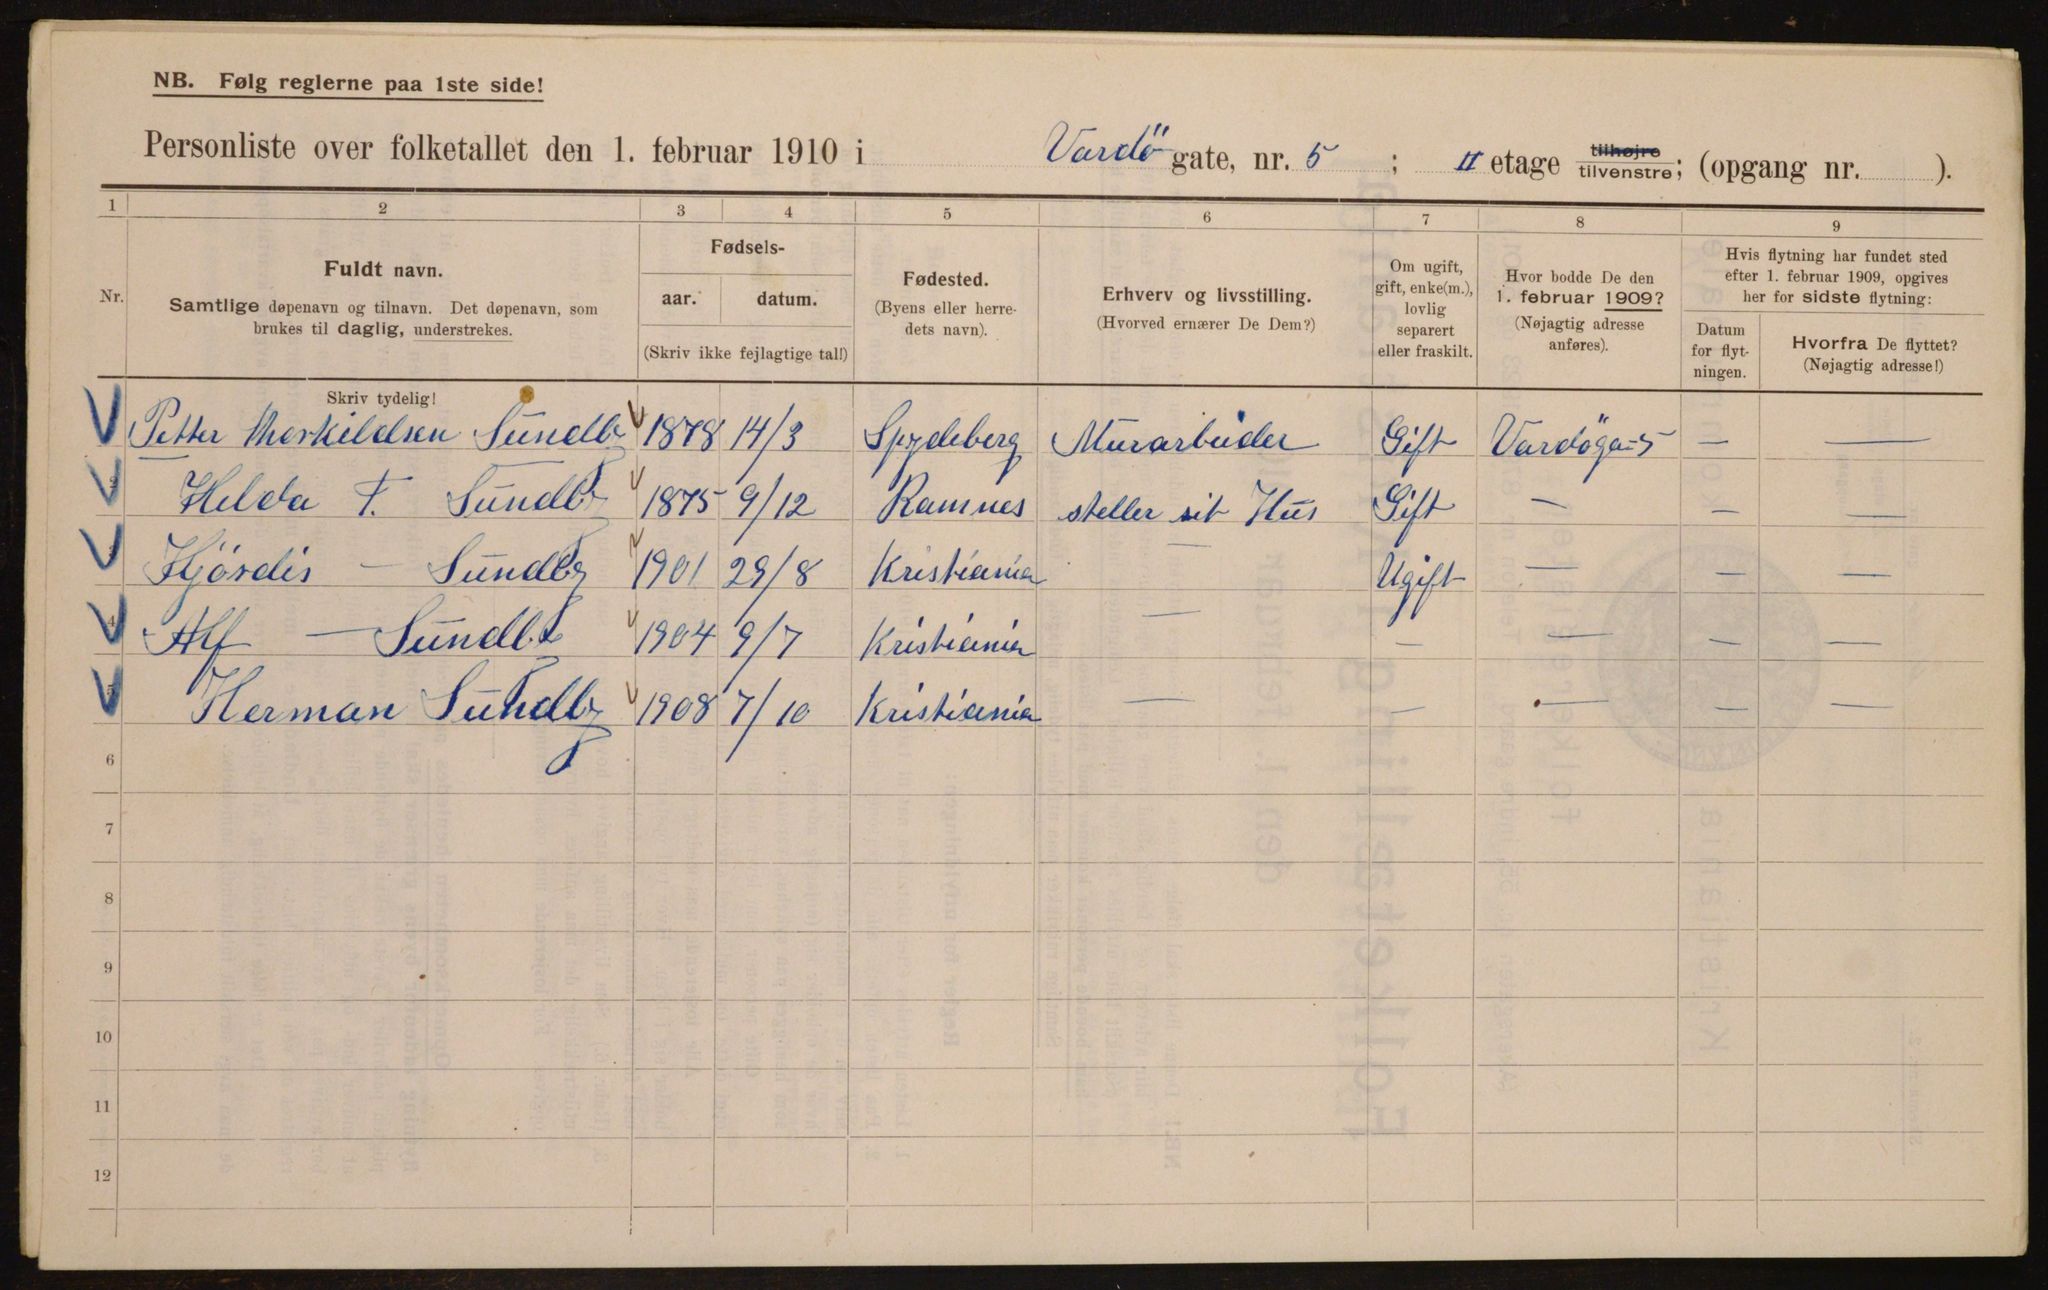 NB. Følg reglerne paa 1ste side!
Personliste over folketallet den 1. februar 1910 i Vardö gate, nr. 5 ; II etage tilhøjre tilvenstre; (opgang nr. ).
1 2 3 4 5 6 7 8 9
Nr.
Fuldt navn.
Samtlige døpenavn og tilnavn. Det døpenavn, som
brukes til daglig, understrekes.
Skriv tydelig!
Fødsels-
aar. datum.
(Skriv ikke fejlagtige tal!)
Fødested.
(Byens eller herre-
dets navn).
Erhverv og livsstilling.
(Hvorved ernærer De Dem?)
Om ugift,
gift, enke(m.),
lovlig
separert
eller fraskilt.
Hvor bodde De den
1. februar 1909?
(Nøjagtig adresse
anføres).
Hvis flytning har fundet sted
efter 1. februar 1909, opgives
her for sidste flytning:
Datum
for flyt-
ningen.
Hvorfra De flyttet?
(Nøjagtig adresse!)
Petter Thorkildsen Sundby 1878 14/3 Spydeberg Murarbeider Gift Vardöga-5 — —
Helda T. Sundby 1875 9/12 Ramnes steller sit Hus Gift — — —
3 Hjördis — Sundby 1901 29/8 Kristiania — Ugift — — —
4 Alf — Sundby 1904 9/7 Kristiania — — — — —
5 Herman Sundby 1908 7/10 Kristiania — — — — —
6
7
8
9
10
11
12